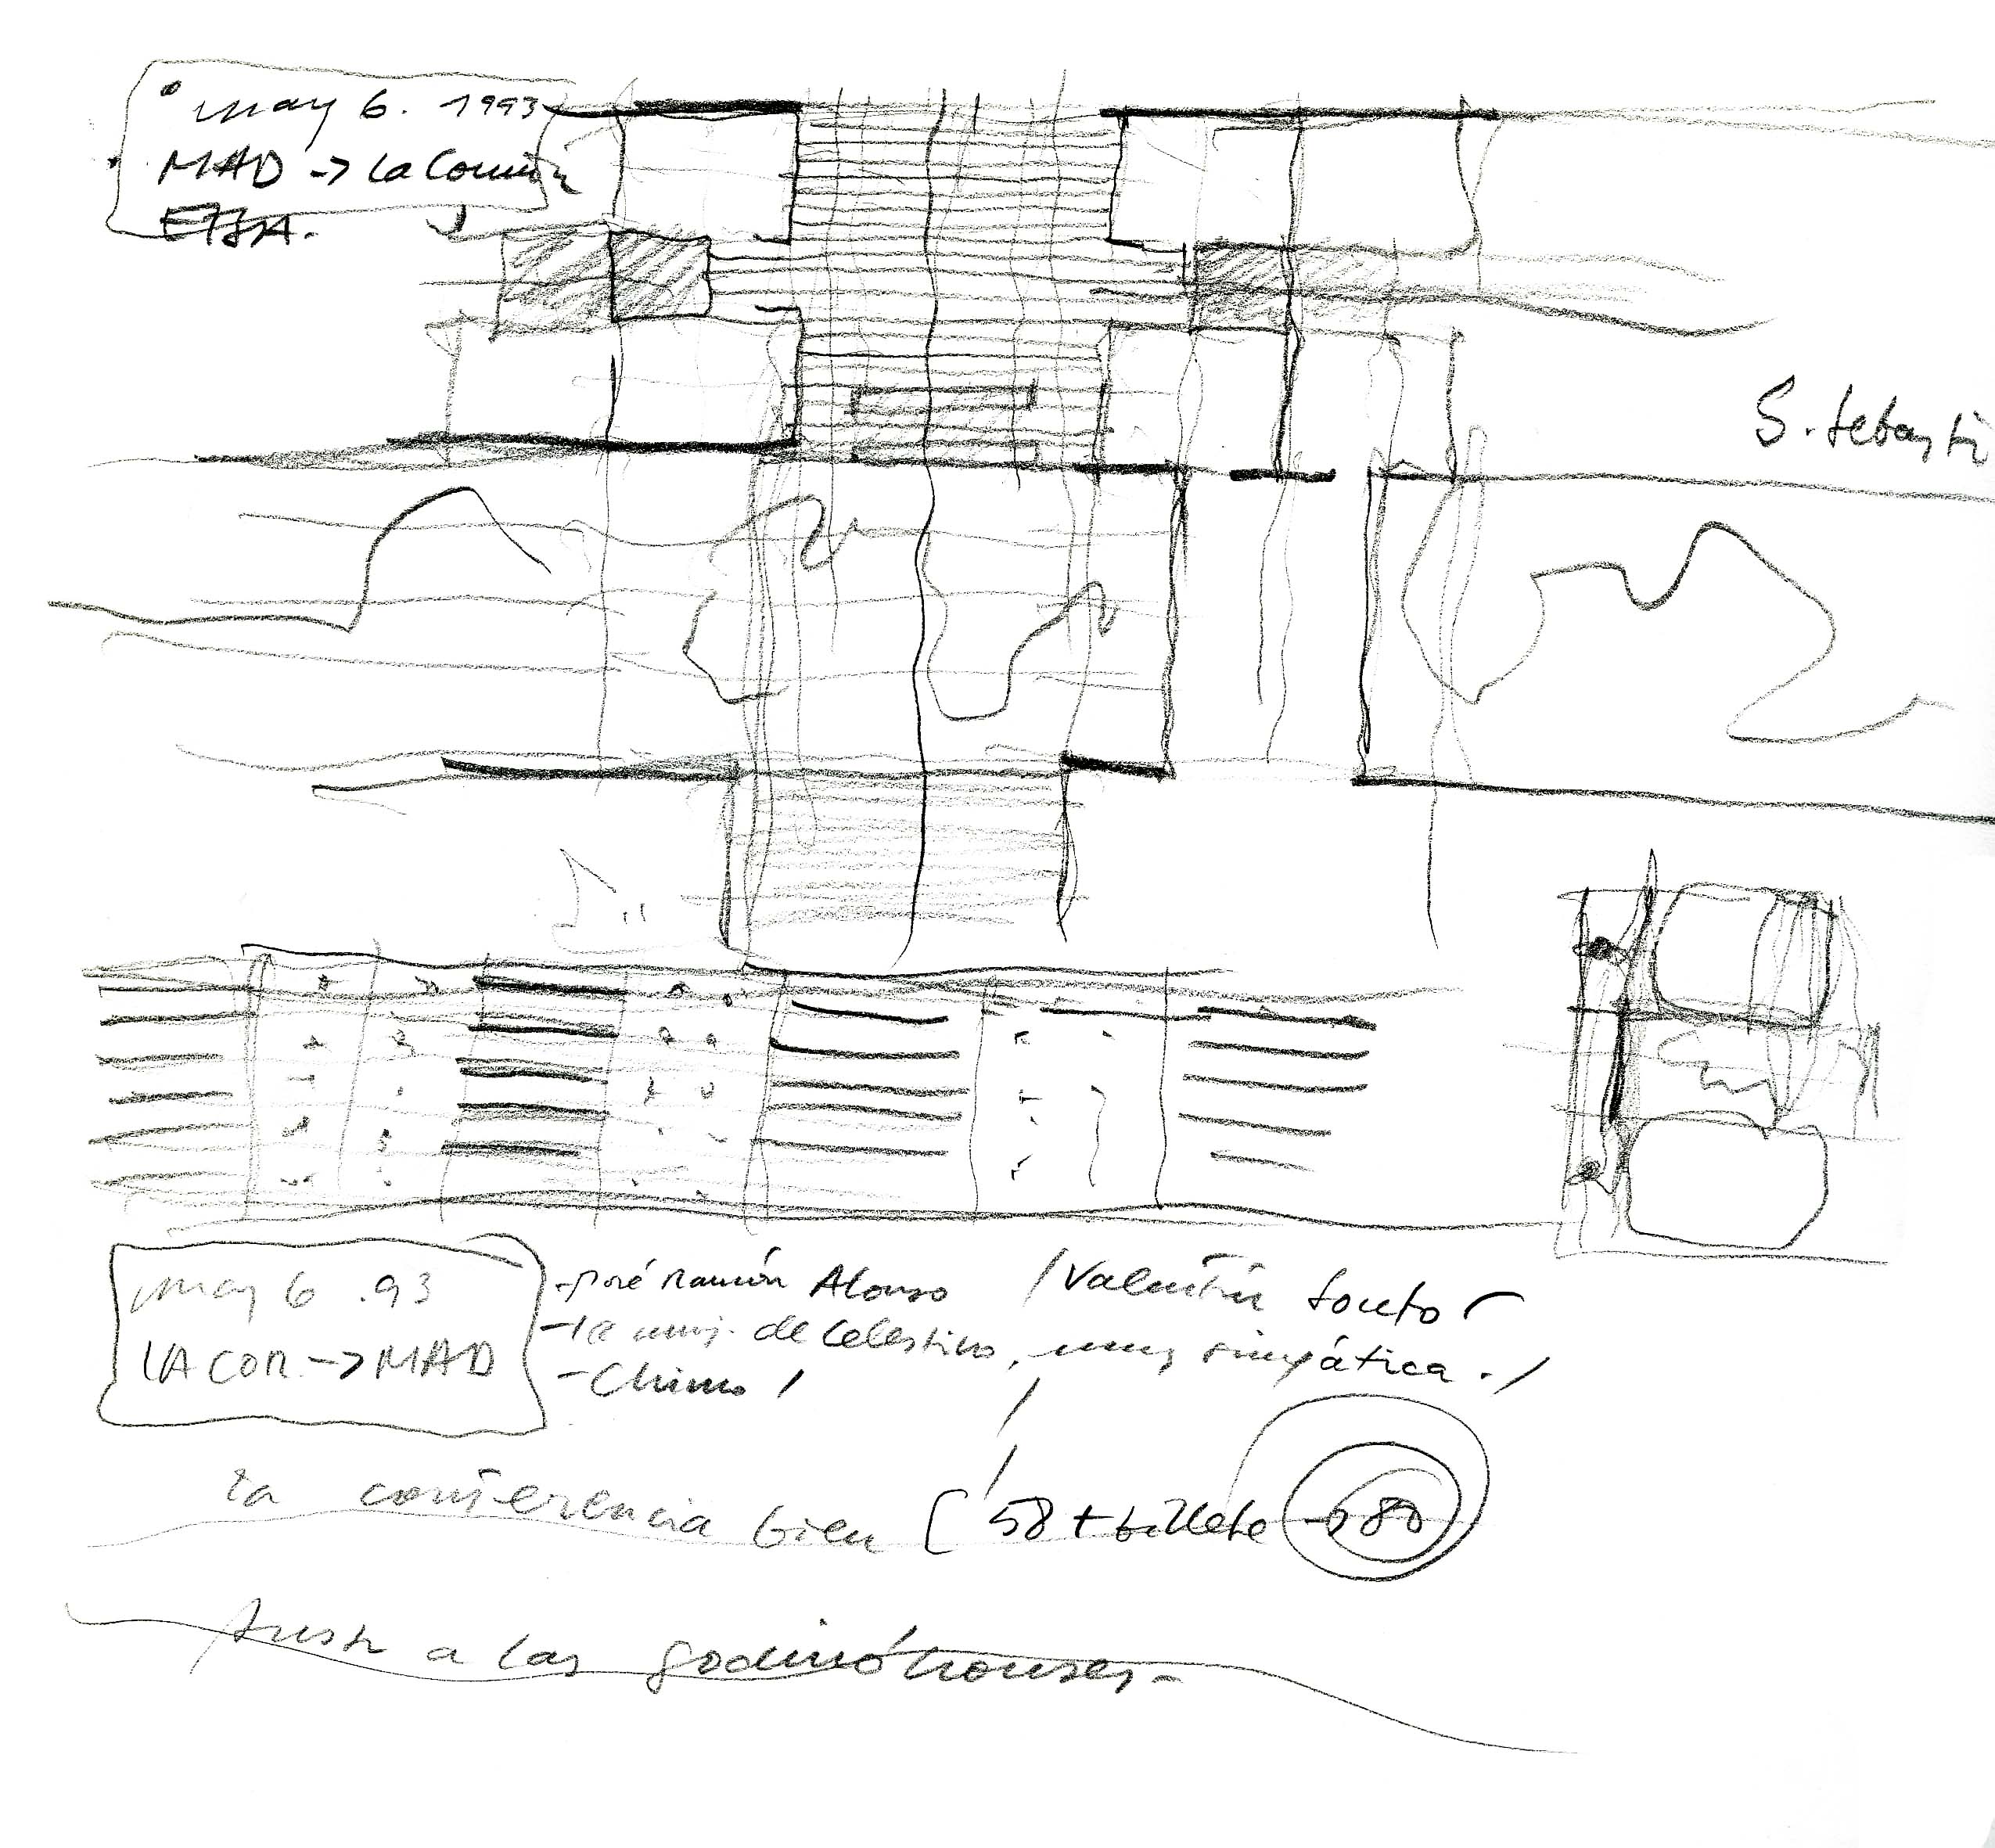 may 6. 1993
MAD -> La Coruña
ETSA.
S. Sebasti
may 6 .93
LA COR. -> MAD
- José Ramón Alonso / Valentín Souto
- la muj. de Celestino, muy simpática. /
- Chimo /
la conferencia bien [ 58 + billete 80
a las houses -